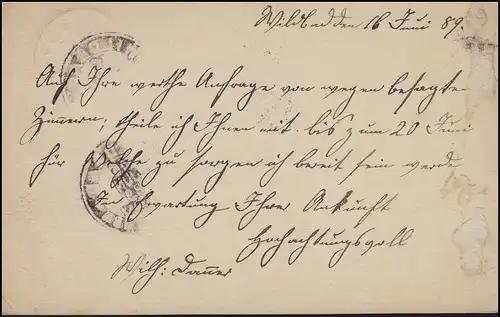 Wildbad den 16 Juni 89.
Auf Ihre werthe Anfrage von wegen besagten
Zimmern; theile ich Ihnen mit bis zum 20 Juni
für Welche zu sorgen ich bereit sein werde
In Erwartung Ihrer Ankunft
Hochachtungsvoll
Wilh: